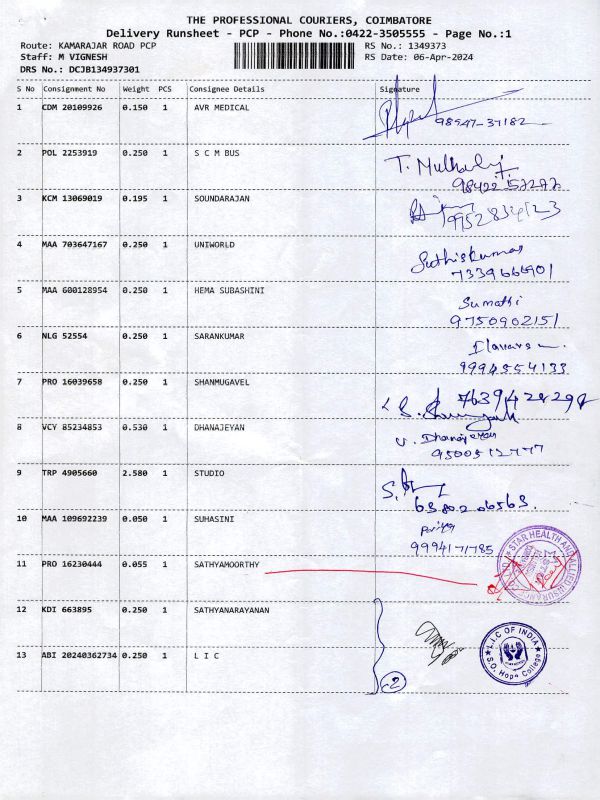 THE PROFESSIONAL COURIERS, COIMBATORE
Delivery Runsheet - PCP - Phone No.:0422-3505555 - Page No.:1
Route: KAMARAJAR ROAD PCP RS No.: 1349373
Staff: M VIGNESH RS Date: 06-Apr-2024
DRS No.: DCJB134937301
S No Consignment No Weight PCS Consignee Details Signature
1 CDM 20109926 0.150 1 AVR MEDICAL
98947-37182
2 POL 2253919 0.250 1 S C M BUS
T.
3 KCM 13069019 0.195 1 SOUNDARAJAN
9952834123
4 MAA 703647167 0.250 1 UNIWORLD
Suthiskumar
7339666901
5 MAA 600128954 0.250 1 HEMA SUBASHINI
Sumathi
9750902151
6 NLG 52554 0.250 1 SARANKUMAR
9994554133
7 PRO 16039658 0.250 1 SHANMUGAVEL
7639428298
8 VCY 85234853 0.530 1 DHANAJEYAN
V. Dhanajeyan
9500512777
9 TRP 4905660 2.580 1 STUDIO
6380206563.
10 MAA 109692239 0.050 1 SUHASINI
Priya
9994171785
11 PRO 16230444 0.055 1 SATHYAMOORTHY
STAR HEALTH AND ALLIED INSURANCE
12 KDI 663895 0.250 1 SATHYANARAYANAN
13 ABI 20240362734 0.250 1 L I C
2
L.I.C OF INDIA
S.O. Hope College